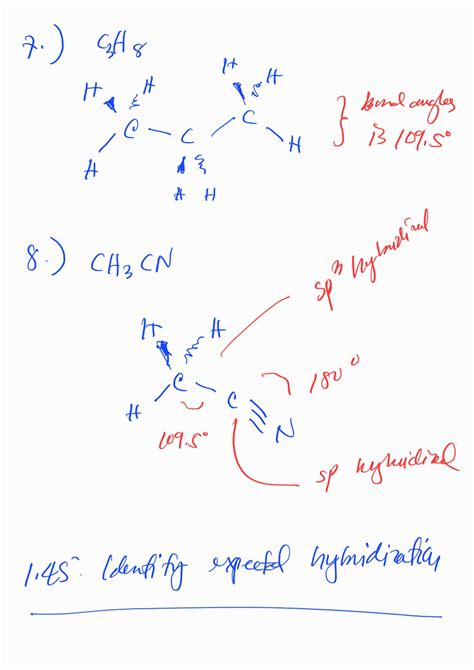 7.) C3H8
H H H H
C C C
H H H H
Bond angles
is 109.5°
8.) CH3CN
sp3 hybridized
H H
C C N
H
109.5°
180°
sp hybridized
1.45: Identify expected hybridization